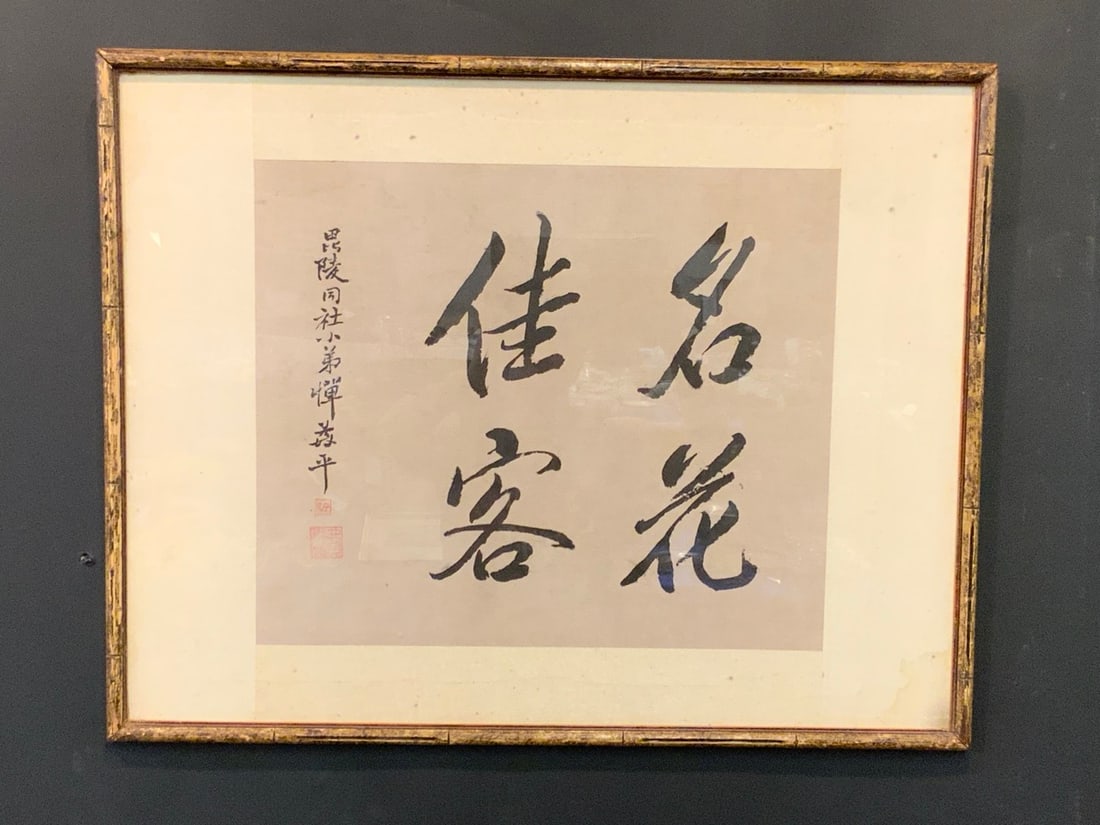 名花
佳客
毘陵同社小弟惲益平